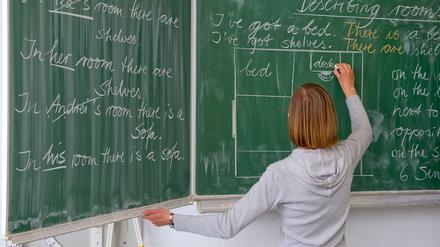 room there are
shelves.
In her room there are
Shelves.
In Andrei's room there is a
Sofa.
In his room there is a sofa.
Describing room
I've got a bed. There is a be
I've got shelves. There are she
bed
desk
on the
on the
next to
opposit
on the s
6 Sen